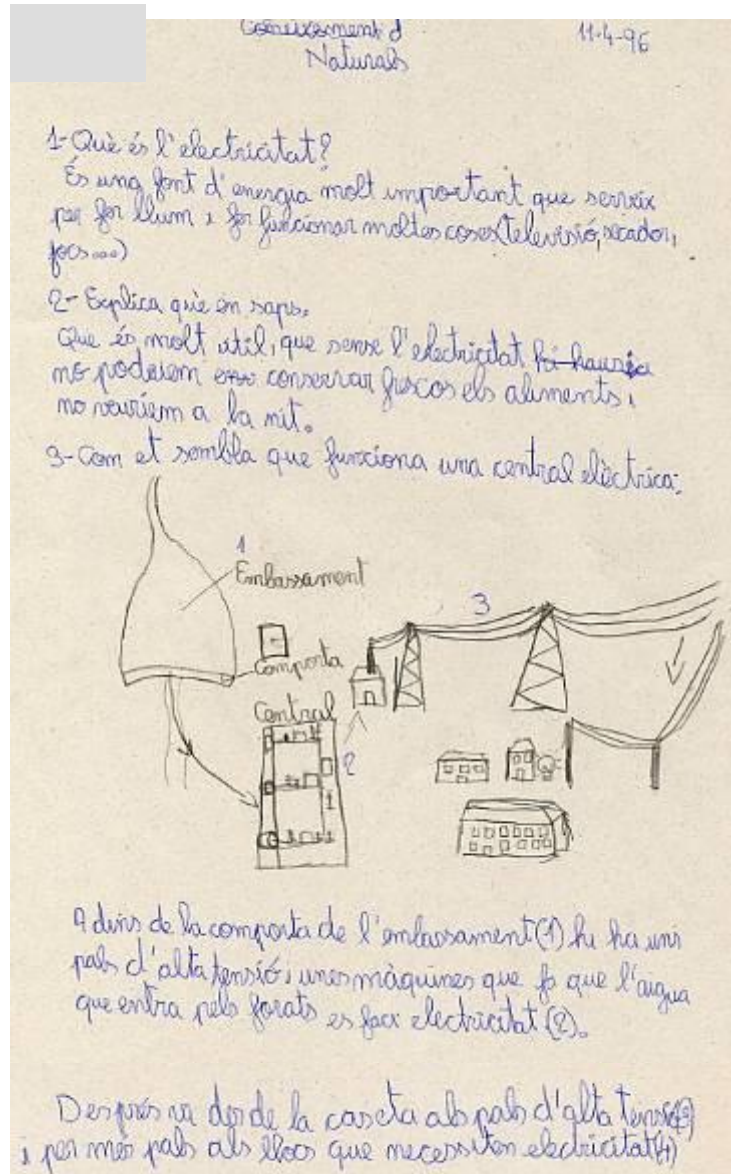 Coneixement d
Naturals
11-4-96
1-Què és l'electricitat?
És una font d'energia molt important que serveix
per fer llum i fer funcionar moltes coses(televisió, secador,
focs...)
2- Explica què en saps.
Que és molt útil, que sense l'electricitat hi hauria
no podríem conservar frescos els aliments i
no veuríem a la nit.
3-Com et sembla que funciona una central elèctrica:
1
Embassament
3
Comporta
Central
2
A dins de la comporta de l'embassament(1) hi ha uns
pals d'alta tensió i unes màquines que fa que l'aigua
que entra pels forats es faci electricitat(2).
Després va desde la caseta als pals d'alta tensió(3)
i per més pals als llocs que necessiten electricitat(4)